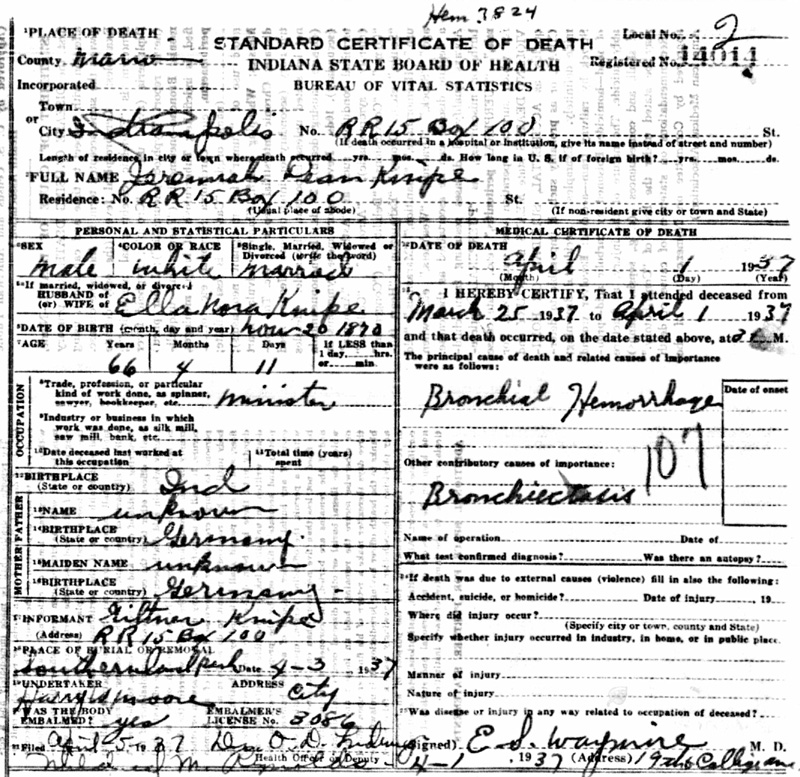 Hem. 3824
PLACE OF DEATH
STANDARD CERTIFICATE OF DEATH
Local No. 2
County Marion
INDIANA STATE BOARD OF HEALTH
Registered No. 14011
Incorporated
BUREAU OF VITAL STATISTICS
Town
or
City Indianapolis No. RR 15 Box 100 St.
(If death occurred in a hospital or institution, give its name instead of street and number)
Length of residence in city or town where death occurred yrs. mos. ds. How long in U. S. if of foreign birth? yrs. mos. ds.
FULL NAME Jeremiah Dean Knipe
Residence: No. RR 15 Box 100 St.
(Usual place of abode) (If non-resident give city or town and State)
PERSONAL AND STATISTICAL PARTICULARS
SEX COLOR OR RACE Single, Married, Widowed or
Divorced (write the word)
Male White Married
If married, widowed, or divorced
HUSBAND of
(or) WIFE of Ella Nora Knipe
DATE OF BIRTH (month, day and year) Nov-20 1870
AGE Years Months Days If LESS than
1 day hrs.
or min.
66 4 11
OCCUPATION
Trade, profession, or particular
kind of work done, as spinner,
sawyer, bookkeeper, etc. Minister
Industry or business in which
work was done, as silk mill,
saw mill, bank, etc.
Date deceased last worked at
this occupation
Total time (years)
spent
BIRTHPLACE
(State or country) Ind
FATHER
NAME unknown
BIRTHPLACE
(State or country) Germany.
MOTHER
MAIDEN NAME unknown
BIRTHPLACE
(State or country) Germany -
INFORMANT Giftner Knipe
(Address) RR 15 Box 100
PLACE OF BURIAL OR REMOVAL
Date 4-3 1937
UNDERTAKER ADDRESS
Harry W Moore City
WAS THE BODY
EMBALMED? yes
EMBALMER'S
LICENSE No. 3086
Filed April 5 1937 Dr. O. D.
Health Officer or Deputy
MEDICAL CERTIFICATE OF DEATH
DATE OF DEATH
April 1 1937
(Month) (Day) (Year)
I HEREBY CERTIFY, That I attended deceased from
March 25 1937 to April 1 1937
and that death occurred, on the date stated above, at M.
The principal cause of death and related causes of importance
were as follows:
Date of onset
Bronchial Hemorrhage
107
Other contributory causes of importance:
Bronchiectasis
Name of operation Date of
What test confirmed diagnosis? Was there an autopsy?
If death was due to external causes (violence) fill in also the following:
Accident, suicide, or homicide? Date of injury 19
Where did injury occur?
(Specify city or town, county and State)
Specify whether injury occurred in industry, in home, or in public place.
Manner of injury
Nature of injury
Was disease or injury in any way related to occupation of deceased?
(Signed) E. S. Waymire M. D.
4-1 1937 (Address)